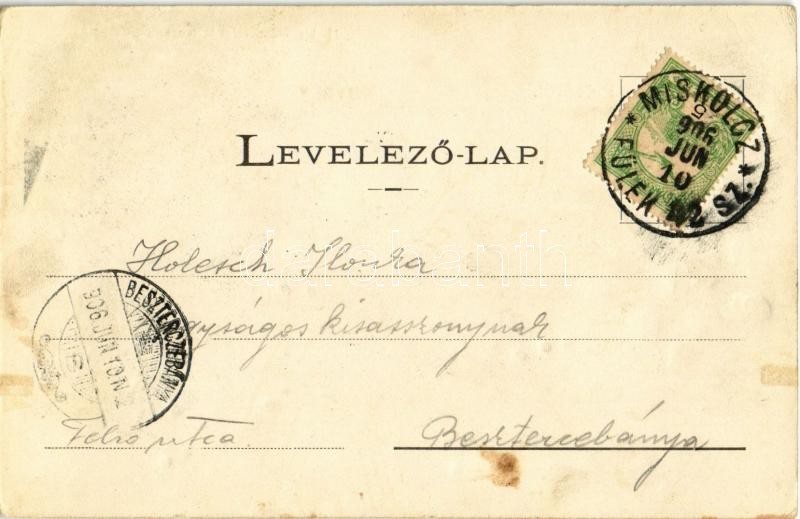 LEVELEZŐ-LAP.
MISKOLCZ
5
906
JUN
10
* FÜLEK 42 SZ. *
Holesch Ilonka
BESZTERCZEBÁNYA
906 JUN 10 N 2
kisasszonynak
Felső utca.
Besztercebánya